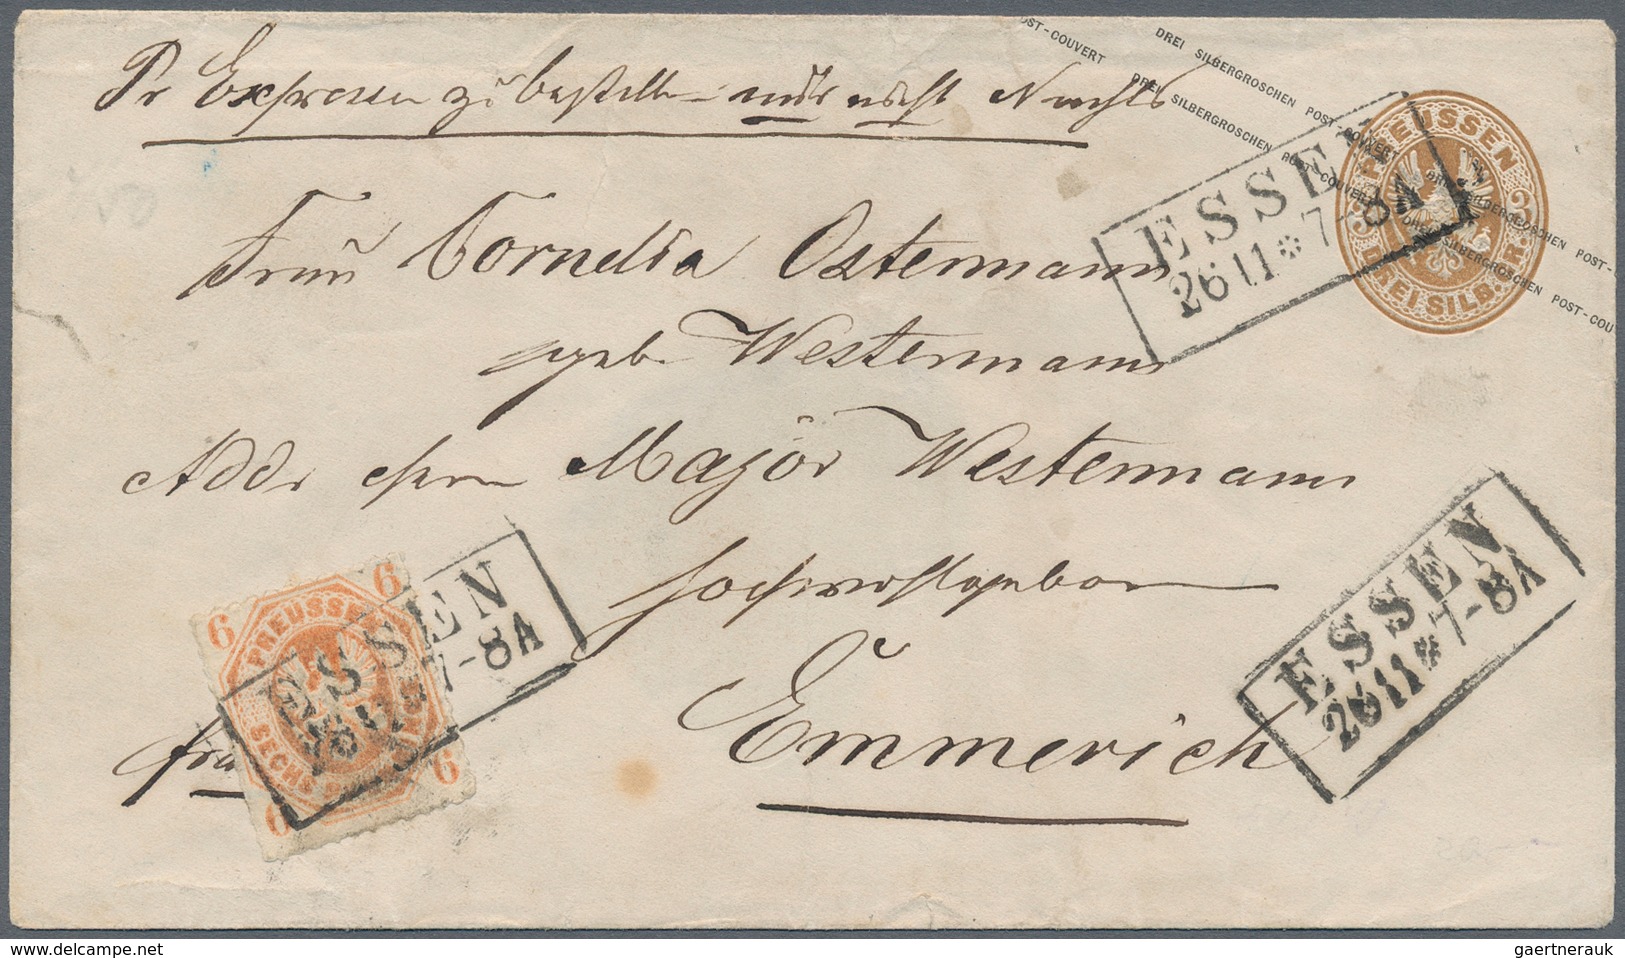 DREI SILBERGROSCHEN POST-COUVERT
POST-COUVERT DREI SILBERGROSCHEN POST-COUVERT
DREI SILBERGROSCHEN POST-COU
DREI SILBERGROSCHEN POST-COU
Pr Expressen zu bestellen nur nicht Nachts
PREUSSEN
3 3
DREI SILB. GR.
ESSEN
26 11 * 7-8A
Frau Cornelia Ostermann
geb. Westermann
Addr Herrn Major Westermann
Hochwohlgeboren
Emmerich
ESSEN
26 11 * 7-8A
6 6
PREUSSEN
SECHS
6 6
ESSEN
26 11 7-8A
fra
www.delcampe.net
gaertnerauk